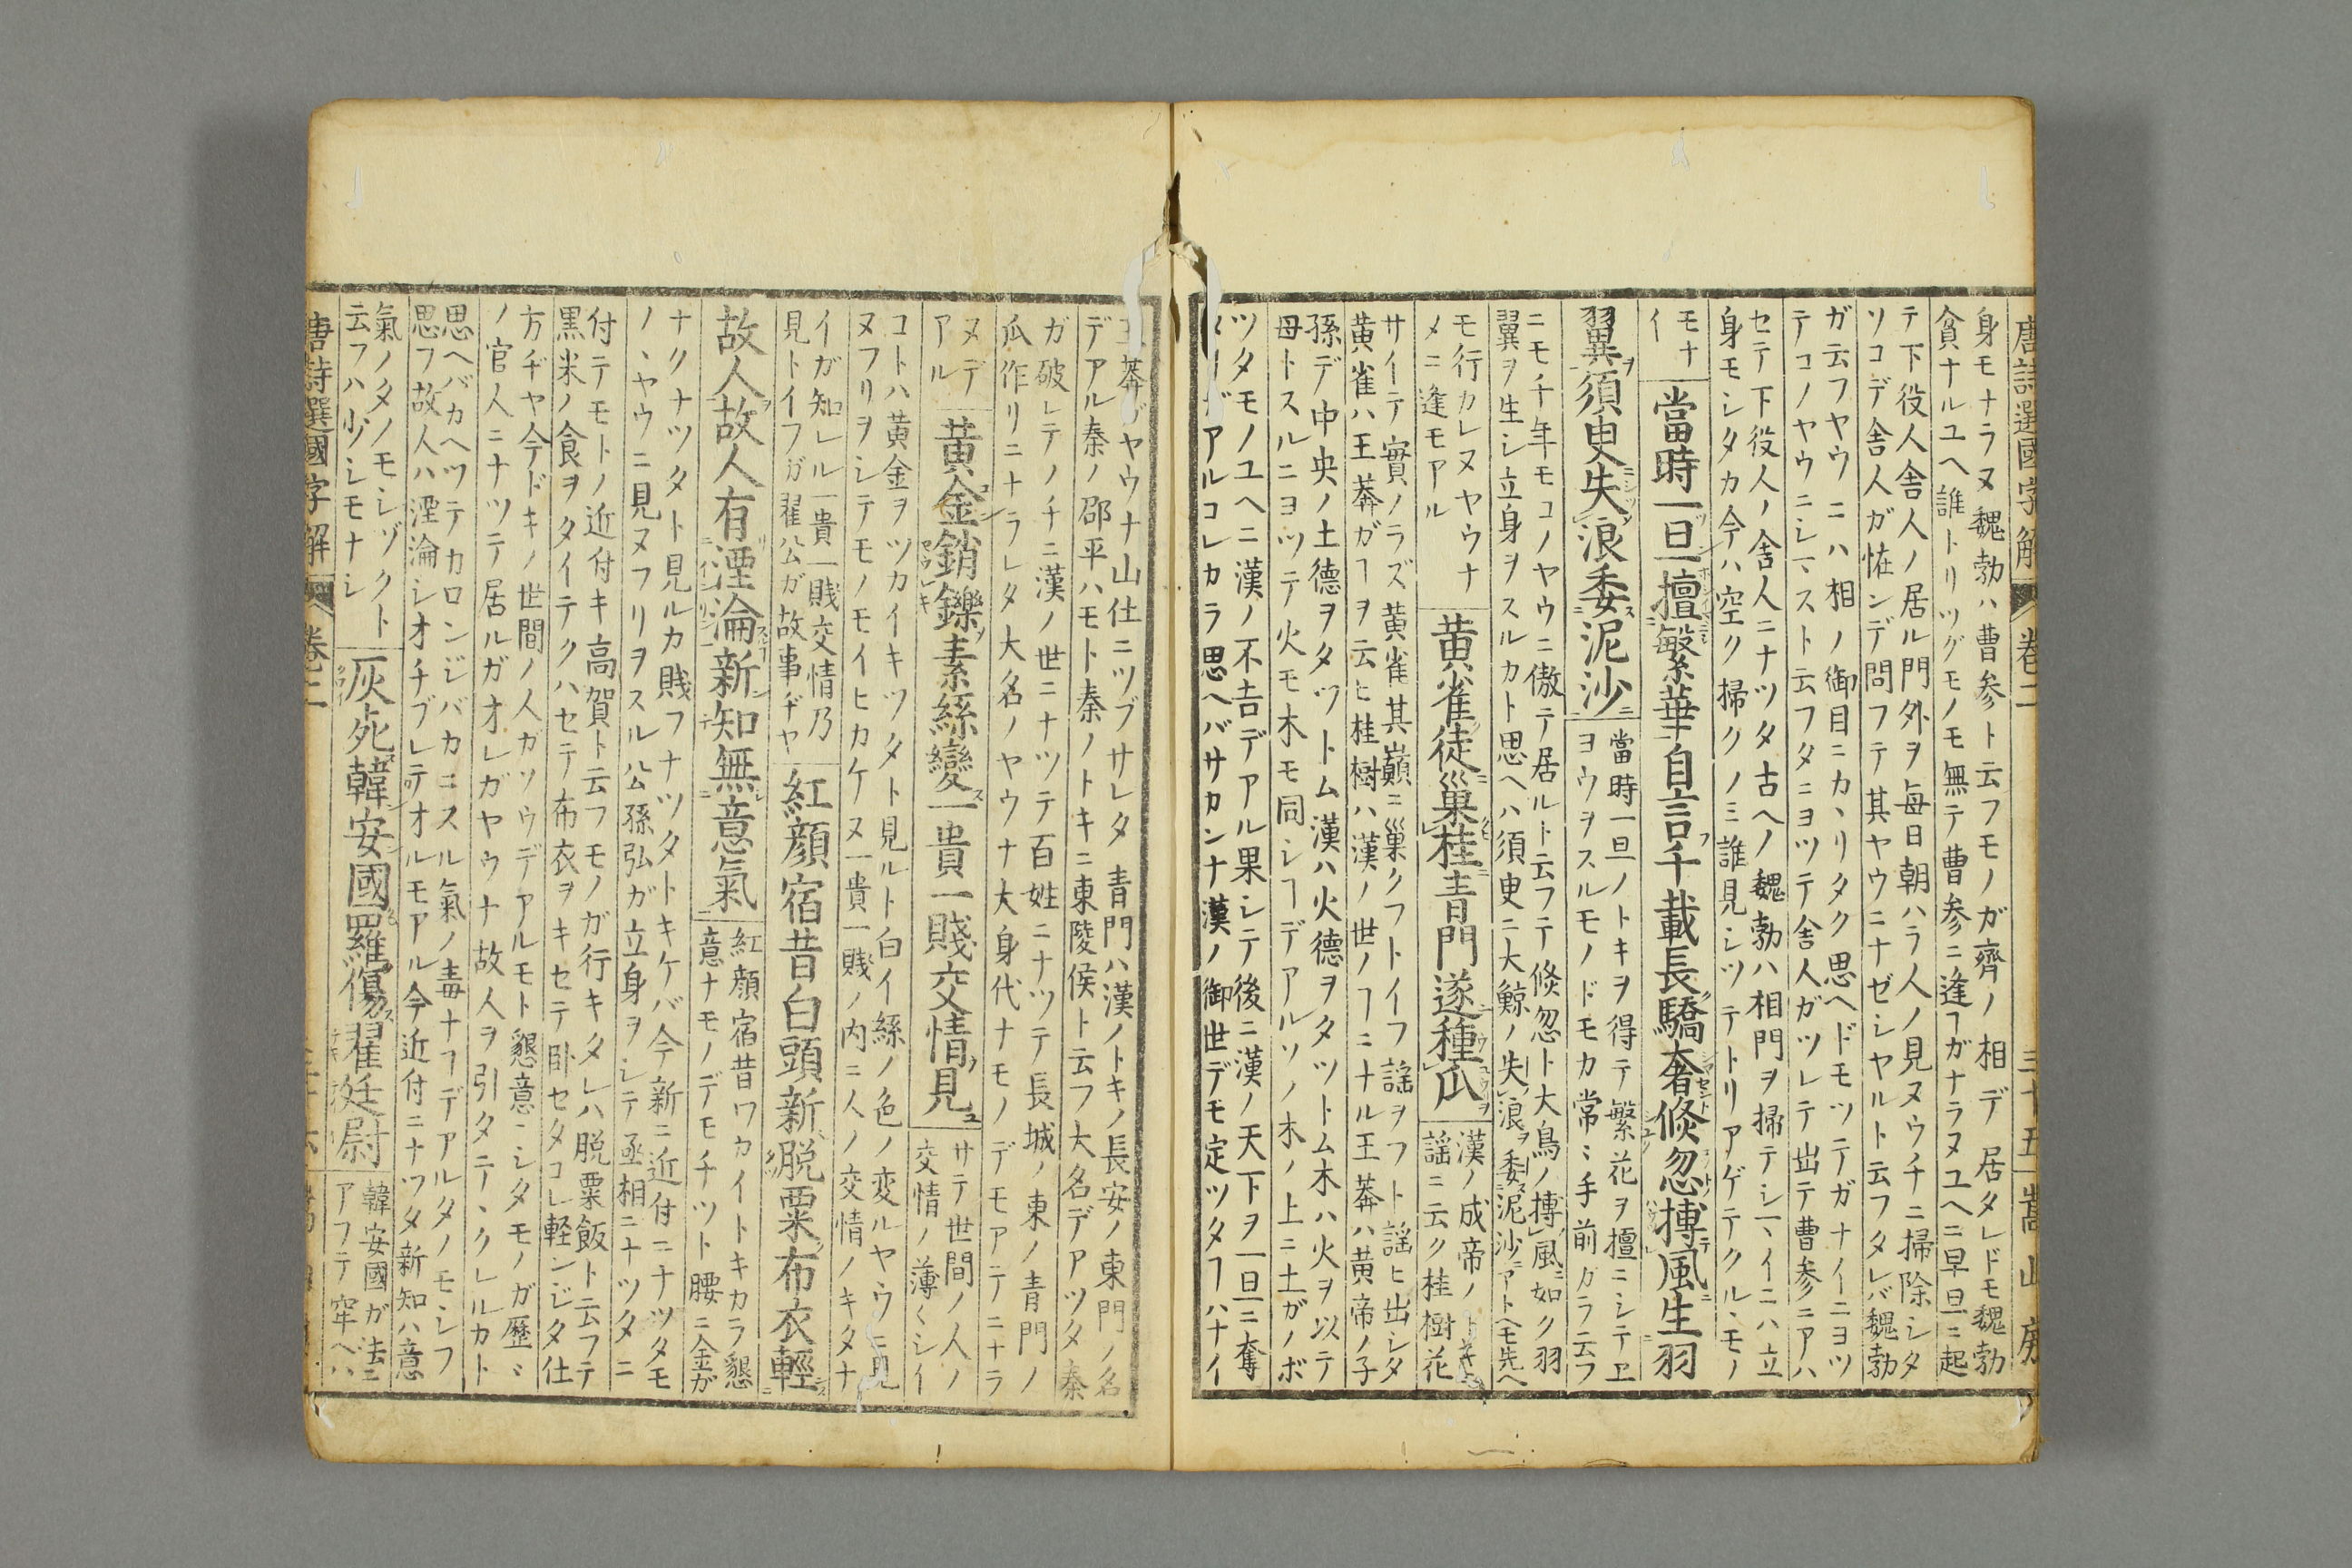 唐詩選國字解 卷二 三十五 嵩山房
身モナラヌ魏勃ハ曹参ト云フモノガ齊ノ相デ居タレドモ魏勃
貧ナルユヘ誰トリツグモノモ無テ曹参ニ逢ヿガナラヌユヘニ早旦ニ起
テ下役人舎人ノ居ル門外ヲ毎日朝ハラ人ノ見ヌウチニ掃除シタ
ソコデ舎人ガ恠ンデ問フテ其ヤウニナゼシヤルト云フタレバ魏勃
ガ云フヤウニハ相ノ御目ニカヽリタク思ヘドモツテガナイニヨツ
テコノヤウニシマスト云フタニヨツテ舎人ガツレテ出テ曹参ニアハ
セテ下役人ノ舎人ニナツタ古ヘノ魏勃ハ相門ヲ掃テシマイニハ立
身モシタカ今ハ空ク掃クノミ誰見シツテトリアゲテクルヽモノ
モナ
イ
當時一旦擅繁華自言千載長驕奢倐忽摶風生羽
翼須臾失浪委泥沙
當時一旦ノトキヲ得テ繁花ヲ擅ニシテヱ
ヨウヲスルモノドモカ常ニ手前カラ云フ
ニモ千年モコノヤウニ傲テ居ルト云フテ倐忽ト大鳥ノ摶風如ク羽
翼ヲ生シ立身ヲスルカト思ヘハ須臾ニ大鯨ノ失浪ヲ委泥沙アトヘモ先ヘ
モ行カレヌヤウナ
メニ逢モアル
黄雀徒巢桂青門遂種瓜
漢ノ成帝ノトキノ
謡ニ云ク桂樹花
サイテ實ノラズ黄雀其巓ニ巢クフトイフ謡ヲフト謡ヒ出シタ
黄雀ハ王莽ガヿヲ云ヒ桂樹ハ漢ノ世ノヿニナル王莽ハ黄帝ノ子
孫デ中央ノ土德ヲタツトム漢ハ火德ヲタツトム木ハ火ヲ以テ
母トスルニヨツテ火モ木モ同シヿデアルソノ木ノ上ニ土ガノボ
ツタモノユヘニ漢ノ不吉デアル果シテ後ニ漢ノ天下ヲ一旦ニ奪
アルコレカラ思ヘバサカンナ漢ノ御世デモ定ツタヿハナイ
王莽ガヤウナ山仕ニツブサレタ青門ハ漢ノトキノ長安ノ東門ノ名
デアル秦ノ邵平ハモト秦ノトキニ東陵侯ト云フ大名デアツタ秦
ガ破レテノチニ漢ノ世ニナツテ百姓ニナツテ長城ノ東ノ青門ノ
瓜作リニナラレタ大名ノヤウナ大身代ナモノデモアテニナラ
ヌデ
アル
黄金銷鑠素絲變一貴一賤交情見
サテ世間ノ人ノ
交情ノ薄クシイ
コトハ黄金ヲツカイキツタト見ルト白イ絲ノ色ノ変ルヤウニ見
ヌフリヲシテモノモイヒカケヌ一貴一賤ノ内ニ人ノ交情ノキタナ
イガ知レル一貴一賤交情乃
見トイフガ翟公ガ故事ヂヤ
紅顔宿昔白頭新脱粟布衣輕
故人故人有湮淪新知無意氣
紅顔宿昔ワカイトキカラ懇
意ナモノデモチツト腰ニ金ガ
ナクナツタト見ルカ賎フナツタトキケバ今新ニ近付ニナツタモ
ノヽヤウニ見ヌフリヲスル公孫弘ガ立身ヲシテ丞相ニナツタニ
付テモトノ近付キ高賀ト云フモノガ行キタレハ脱粟飯ト云フテ
黒米ノ食ヲタイテクハセテ布衣ヲキセテ卧セタコレ軽ンジタ仕
方ヂヤ今ドキノ世間ノ人ガソウデアルモト懇意ニシタモノガ歴ミ
ノ官人ニナツテ居ルガオレガヤウナ故人ヲ引タテヽクレルカト
思ヘバカヘツテカロンジバカニスル氣ノ毒ナヿデアルタノモシフ
思フ故人ハ湮淪シオチブレテオルモアル今近付ニナツタ新知ハ意
氣ノタノモシヅクト
云フハ少シモナシ
灰死韓安國羅傷翟廷尉
韓安國ガ法ニ
アフテ牢ヘハ
唐詩選國字解 卷二